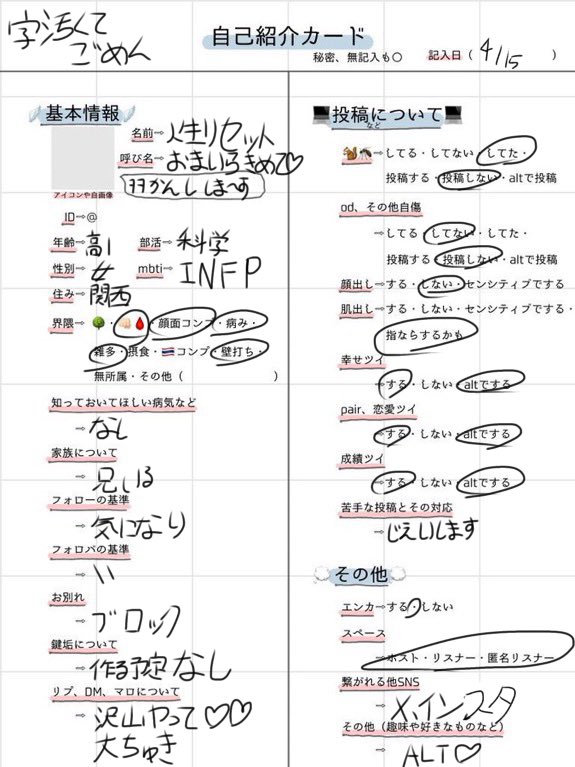 字汚くて
ごめん
自己紹介カード
秘密、無記入も〇
記入日（ 4/15 ）
基本情報
アイコンや自画像
名前→人生リセット
呼び名→おまいらきめて♡
ID→@
年齢→高1
部活→科学
性別→女
mbti→INFP
住み→関西
界隈→・・顔面コンプ・病み・
雑多・摂食・コンプ・壁打ち・
無所属・その他（ ）
知っておいてほしい病気など
→なし
家族について
→兄いる
フォローの基準
→気になり
フォロバの基準
→〃
お別れ
→ブロック
鍵垢について
→作る予定なし
リプ、DM、マロについて
→沢山やって♡♡
大ちゅき
投稿について
など
→してる・してない・してた・
投稿する・投稿しない・altで投稿
od、その他自傷
→してる・してない・してた・
投稿する・投稿しない・altで投稿
顔出し→する・しない・センシティブでする
肌出し→する・しない・センシティブでする・
指ならするかも
幸せツイ
→する・しない・altでする
pair、恋愛ツイ
→する・しない・altでする
成績ツイ
→する・しない・altでする
苦手な投稿とその対応
→じえいします
その他
エンカ→する・しない
スペース
→ホスト・リスナー・匿名リスナー
繋がれる他SNS
→X、インスタ
その他（趣味や好きなものなど）
→ALT♡